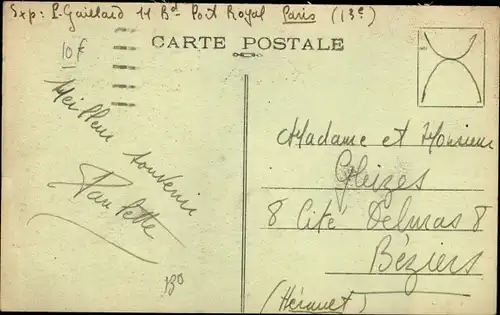 Exp: P. Gaillard 11 Bd Port Royal Paris (13e)
10 F
CARTE POSTALE
Meilleur souvenir
Paulette
Madame et Monsieur
Gleizes
8 Cité Delmas 8
Béziers
(Hérault)
130